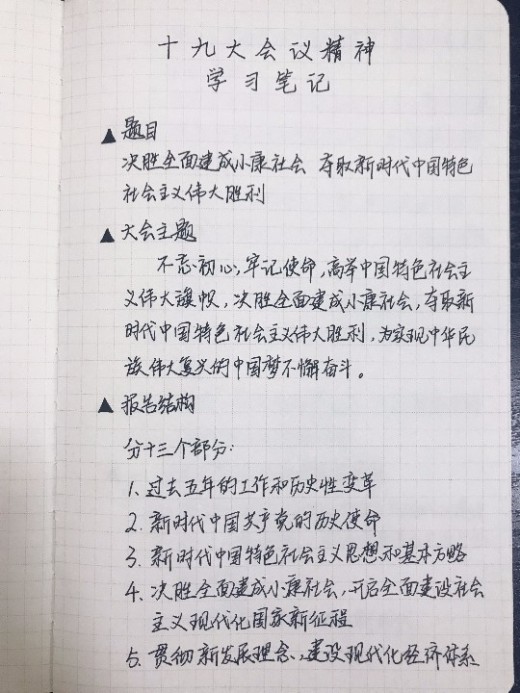 十九大会议精神
学习笔记
▲题目
决胜全面建成小康社会 夺取新时代中国特色
社会主义伟大胜利
▲大会主题
不忘初心,牢记使命,高举中国特色社会主
义伟大旗帜,决胜全面建成小康社会,夺取新
时代中国特色社会主义伟大胜利,为实现中华民
族伟大复兴的中国梦不懈奋斗。
▲报告结构
分十三个部分:
1、过去五年的工作和历史性变革
2、新时代中国共产党的历史使命
3、新时代中国特色社会主义思想和基本方略
4、决胜全面建成小康社会,开启全面建设社会
主义现代化国家新征程
5、贯彻新发展理念、建设现代化经济体系